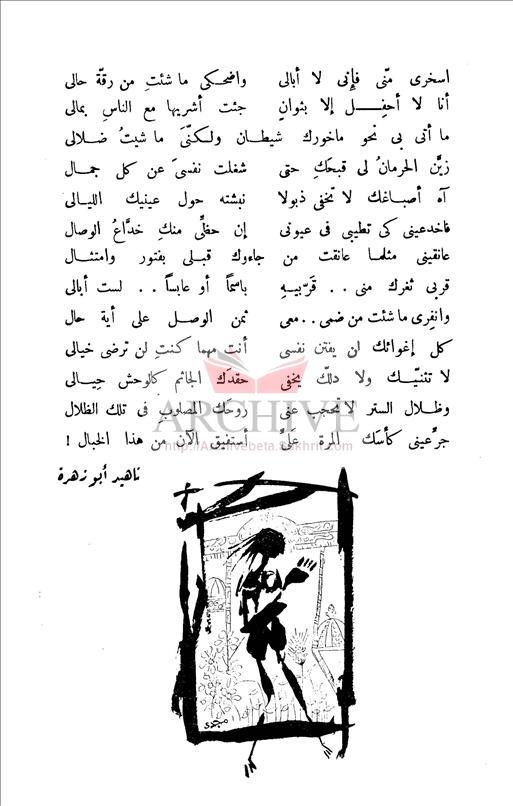 اسخرى منّى فإنى لا أبالى واضحكى ما شئتِ من رقّة حالى
أنا لا أحفِل إلا بثوانٍ جئت أشريها مع الناسِ بمالى
ما أتى بى نحو ماخورك شيطان ولكنّى ما شبتُ ضلالى
زيَّن الحرمانُ لى قبحَكِ حتى شغلت نفسىَ عن كل جمال
آه أصباغك لا تخفى ذبولا نبشته حول عينيك الليالى
فاخدعينى كى تطيبى فى عيونى إن حظِّىَ منكِ خدَّاعُ الوصال
عانقينى مثلما عانقت من جاءوك قبلى بفتور وامتثال
قربى ثغرك منى . . قَرّبيهِ باسمًا أو عابسًا . . لست أبالى
وانفرى ما شئت من ضمى . . معى ثمن الوصل على أية حال
كل إغوائك لن يفتن نفسى أنت مهما كنتِ لن ترضى خيالى
لا تثنيكِ ولا دلكّ يخفى حقدَك الجاثم كالوحش حِيالى
وظلال الستر لا تحجب عنى روحَك المصلوب فى تلك الظلال
جرِّعينى كأسَك المرة عَلِّىَّ أستفيق الآن من هذا الخبال !
ناهيد أبو زهرة
مجدى
ARCHIVE
http://Archivebeta.Sakhrit.com